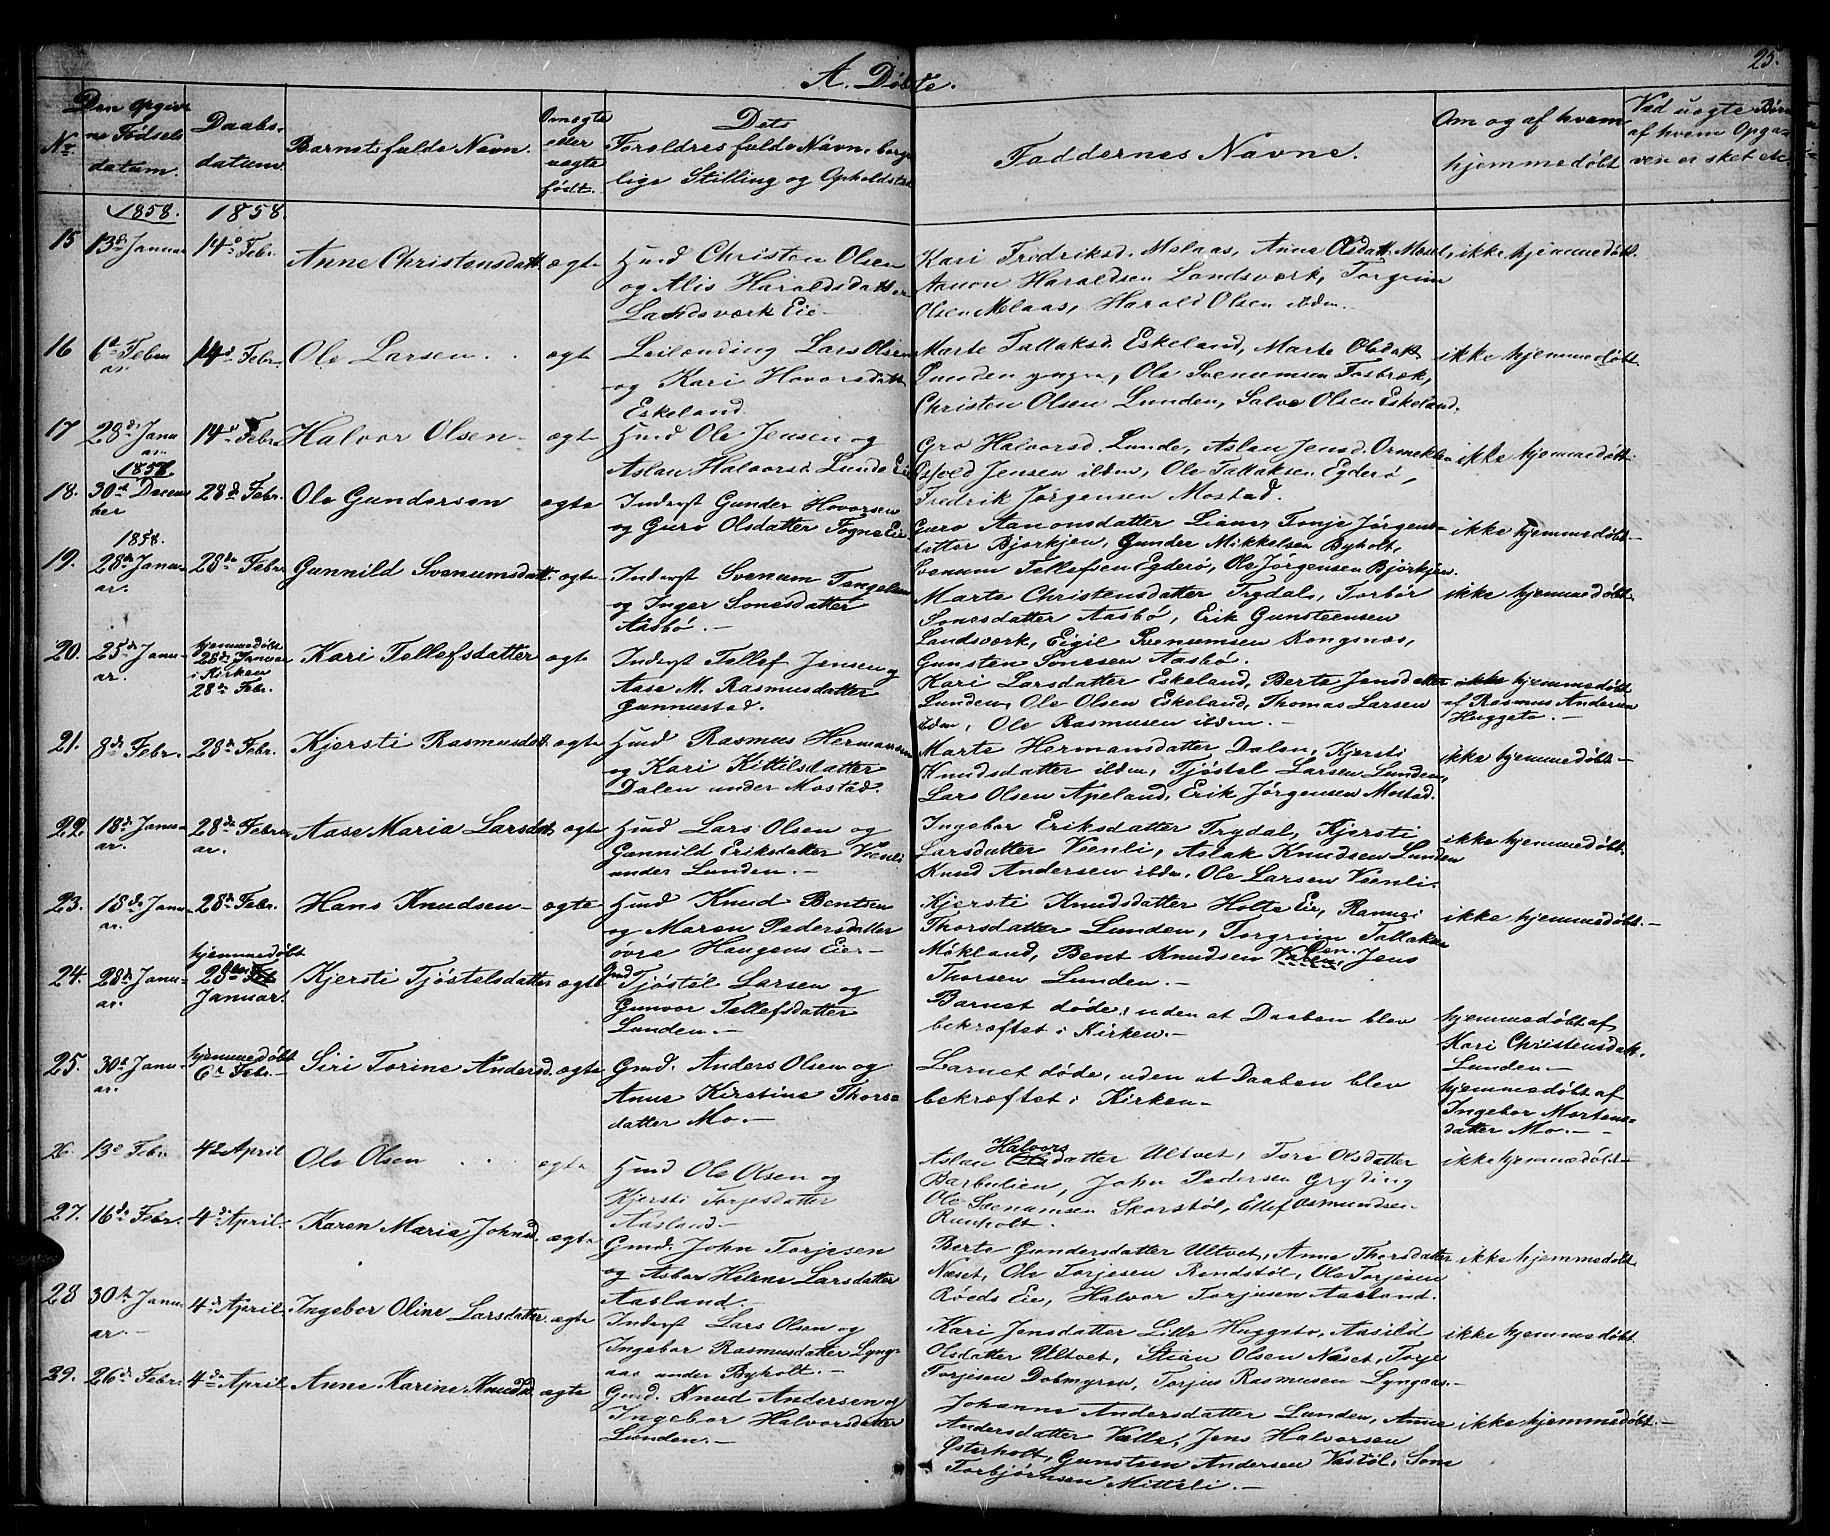 25.
A. Døbte.
No.
Den opgiv
ne Fødsels
datum.
Daabs-
datum.
Barnets fulde Navn.
Om ægte
eller
uægte
født.
Dets
Forældres fulde Navn, borger
lige Stilling og Opholdsted
Faddernes Navne.
Om og af hvem
hjemmedøbt
Ved uægte Børn
af hvem Opga-
ven er sket etc.
1858. 1858.
15 13de Januar 14de Febr. Anne Christensdatt. ægte
Husd Christen Olsen
og Alis Haraldsdatter
Landsværk Eie
Kari Fredriksd. Melaas, Anne Olsdatt. Mosel,
Aanon Haraldsen Landsværk, Torgrim
Olsen Melaas, Harald Olsen ibdm.
ikke hjemmedøbt.
16 6te Febru
ar 14de Febr. Ole Larsen ægte
Leilænding Lars Olsen
og Kari Hovorsdatt
Eskeland.
Marte Tallaksd. Eskeland, Marte Olsdatt
Lunden yngre, Ole Svenumsen Fosbræk,
Christen Olsen Lunden, Salve Olsen Eskeland.
ikke hjemmedøbt
17 28de Janu
ar 14de Febr. Halvor Olsen ægte
Husd Ole Jensen og
Aslau Halvorsd. Lunde Eie
Gro Halvorsd. Lunde, Aslau Jensd. Ormekleiv
Jensen ibdm, Ole Tallaksen Egderø,
Fredrik Jørgensen Mostad.
ikke hjemmedøbt
1857
18. 30te Decem
ber 28de Febr. Ole Gundersen ægte
Inderst Gunder Hovorsen
og Guro Olsdatter Fogne Eie
Guro Aanonsdatter Liane, Tonje Jørgens-
datter Bjorkjen, Gunder Mikkelsen Byholt,
Svenum Tellefsen Egderø, Ole Jørgensen Bjørkjen.
ikke hjemmedøbt
1858.
19. 28de Janu-
ar. 28de Febr. Gunnild Svenumsdatt. ægte
Inderst Svenum Tengelsen
og Inger Sonesdatter
Aasbø.
Marte Christensdatter Trydal, Torbør
Sonesdatter Aasbø, Erik Gunsteensen
Landsværk, Eigil Svenumsen Rongsnæs,
Gunsten Sonesen Aasbø.
ikke hjemmedøbt.
20. 25de Janu-
ar. hjemmedøbt
28de Januar
i Kirken
28de Febr. Kari Tellefsdatter ægte
Inderst Tellef Jensen og
Aase M. Rasmusdatter
Gunnustad.
Kari Larsdatter Eskeland, Berte Jensdatter
Lunden, Ole Olsen Eskeland, Thomas Larsen
ibdm, Ole Rasmusen ibdm.
ikke hjemmedøbt
af Rasmus Andersen
Huggeto.
21. 8de Febr. 28de Febr. Kjersti Rasmusdatt. ægte
Husd Rasmus Hermansen
og Kari Kittilsdatter
Dalen under Mostad.
Marte Hermansdatter Dalen, Kjersti
Knudsdatter ibdm, Tjøstel Larsen Lunden,
Lars Olsen Apeland, Erik Jørgensen Mostad.
ikke hjemmedøbt
22. 18de Janu-
ar. 28de Febru
ar. Aase Maria Larsdatt ægte
Husd Lars Olsen og
Gunnild Eriksdatter Vienli
under Lunden.
Ingebor Eriksdatter Trydal, Kjersti
Larsdatter Vienli, Aslak Knudsen Lunden
Knud Andersen ibdm, Ole Larsen Vienli.
ikke hjemmedøbt
23. 18de Janu-
ar. 28de Febr. Hans Knudsen ægte
Husd Knud Bentsen
og Maren Pedersdatter
øvre Haugens Eie.
Kjersti Knudsdatter Holte Eie, Ranneg
Thorsdatter Lunden, Torgrim Tallaksen
Møkland, Bent Knudsen Jens
Thorsen Lunden.
ikke hjemmedøbt.
24. 28de Janu-
ar. hjemmedøbt
28de Feb
Januar. Kjersti Tjøstelsdatter ægte
Gmd Tjøstel Larsen og
Gunvor Tellefsdatter
Lunden.
Barnet døde, uden at Daaben blev
bekræftet i Kirken.
hjemmedøbt af
Kari Christensdatt.
Lunden.
25. 30te Janu-
ar. hjemmedøbt
6te Febr. Siri Torine Andersd. ægte
Gmd. Anders Olsen og
Anne Kirstine Thors-
datter Mo.
Barnet døde, uden at Daaben blev
bekræftet i Kirken.
hjemmedøbt af
Ingebor Mortens-
datter Mo.
26. 13de Febr. 4de April Ole Olsen ægte
Husd Ole Olsen og
Kjersti Torjesdatter
Aasland.
Halvors
Aslau datter Ultvet, Tore Olsdatter
Barbulien, John Pedersen Gryding
Ole Svenumsen Skorstøl, Ellef Osmundsen
Runholt.
ikke hjemmedøbt
27. 16de Febr. 4de April. Karen Maria Johnsd. ægte
Gmd. John Torjesen
og Asbor Helene Larsdatter
Aasland.
Berte Gundersdatter Ultvet, Anne Thorsdatter
Næset, Ole Torjesen Rendstøl, Ole Torjesen
Røeds Eie, Halvor Torjusen Aasland.
ikke hjemmedøbt
28 30te Janu
ar. 4de April Ingebor Oline Larsdatter ægte
Inderst Lars Olsen og
Ingebor Rasmusdatter Lyng-
aas under Byholt.
Kari Jensdatter Lille Huggeto, Aasild
Olsdatter Ultvet, Stian Olsen Næset, Torje
Torjesen Dobmyren, Torjus Rasmusen Lyngaas.
ikke hjemmedøbt
29. 26de Febr. 4de April Anne Karine Knudsd ægte
Gmd. Knud Andersen og
Ingebor Halvorsdatter
Lunden.
Johanne Andersdatter Lunden, Anne
Andersdatter Valle, Jens Halvorsen
Østerholt, Gunsten Andersen Vastøl, Sone
Torbjørnsen Mitteli.
ikke hjemmedøbt.